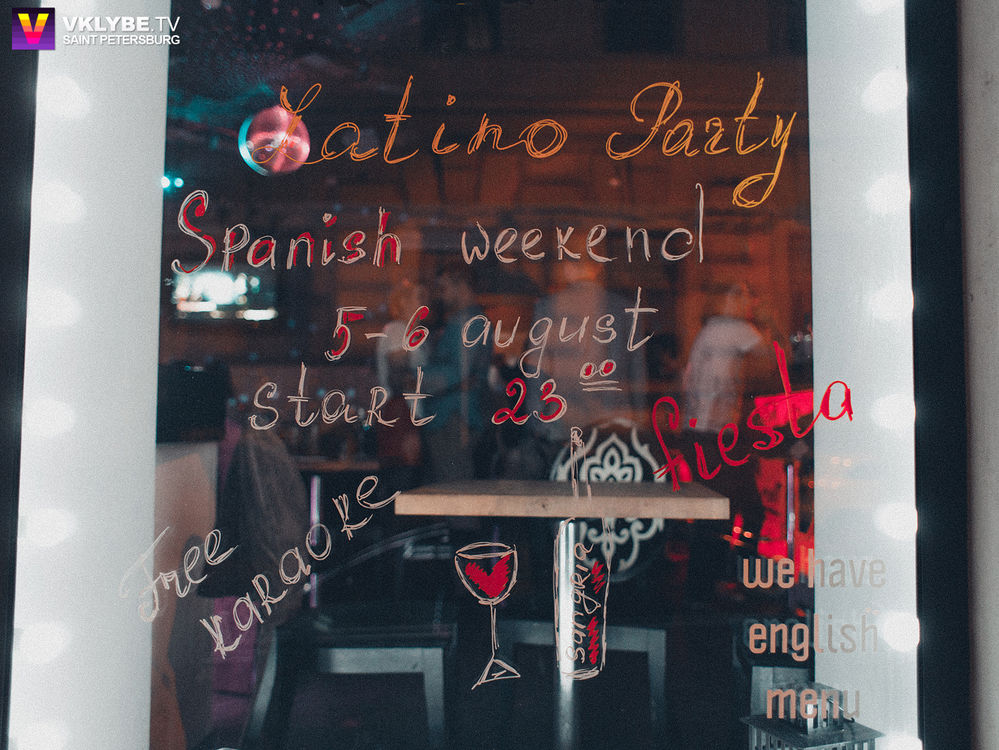 VKLYBE.TV
SAINT PETERSBURG
Latino Party
Spanish weekend
5-6 august
start 23 00
fiesta
Free
karaoke
sangria
we have
english
menu